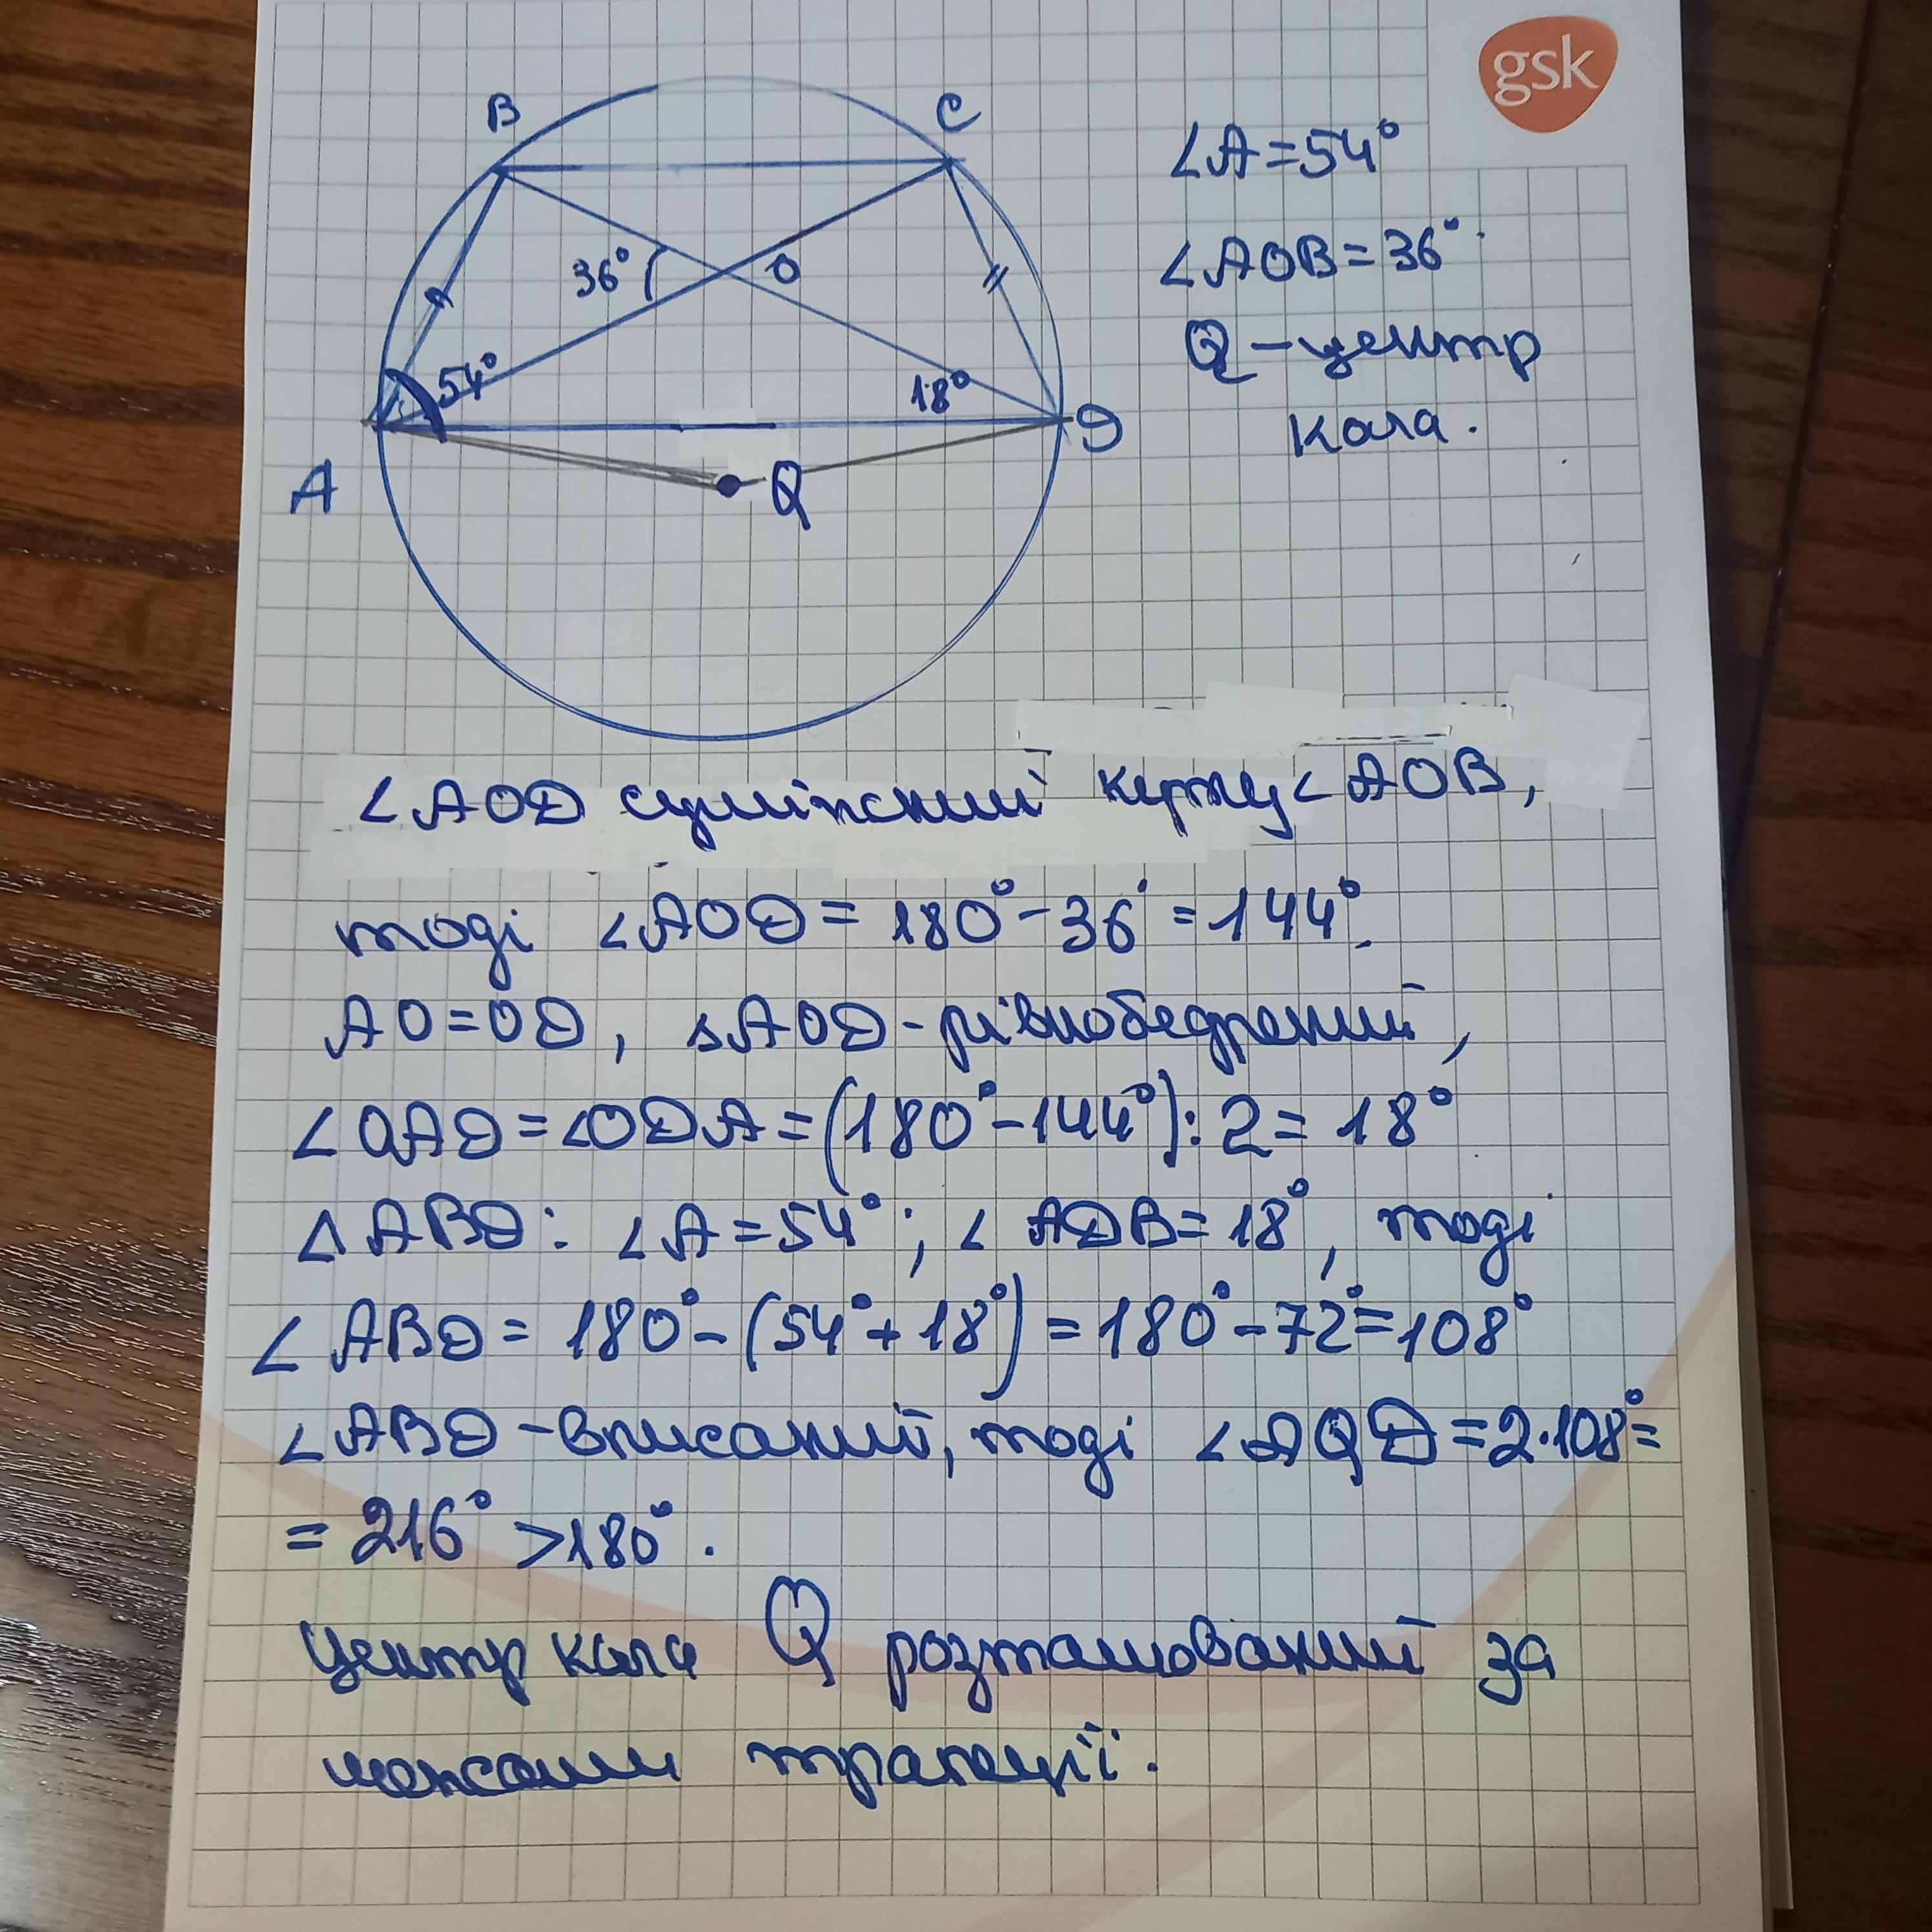 gsk
B
C
36°
O
54°
18°
A
D
Q
∠A=54°
∠AOB=36°
Q – центр
кола.
∠AOD суміжний куту ∠AOB,
тоді ∠AOD = 180° - 36° = 144°.
AO=OD, ΔAOD - рівнобедрений,
∠OAD = ∠ODA = (180° - 144°) : 2 = 18°
ΔABD: ∠A = 54°; ∠ADB = 18°, тоді
∠ABD = 180° - (54° + 18°) = 180° - 72° = 108°
∠ABD - вписаний, тоді ∠AQD = 2·108° =
= 216° > 180°.
Центр кола Q розташований за
межами трапеції.